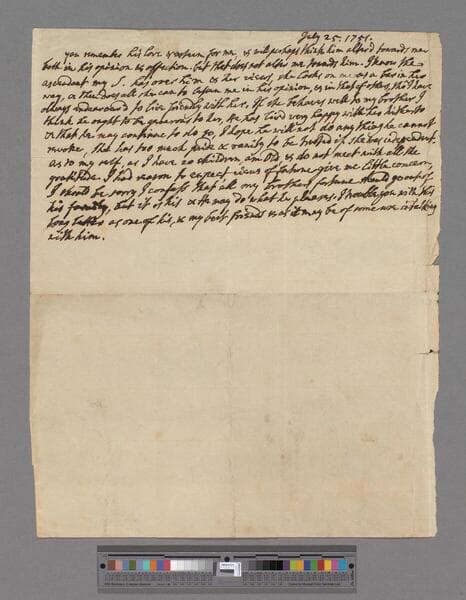 July 25. 1751.
you remember his love & esteem for me & will perhaps think him alter'd towards me
both in his opinion & affection. but that does not alter me towards him. I know the
ascendant my S. has over him & her views, she looks on me as a bar in her
way, & therefore does all she can to lessen me in his opinion, & in that of others, tho' I have
always endeavour'd to live friendly with her. If she behaves well to my brother I
think he ought to be generous to her, he has liv'd very happy with her hitherto
& that he may continue to do so, I hope he will not do any thing he cannot
revoke, she has too much pride & vanity to be trusted if she was independent.
as to my self, as I have no children, am old & do not meet with all the
gratitude I had reason to expect views of fortune give me little concern,
I should be sorry I confess that all my brothers fortune should go out of
his family, but it is his & he may do what he pleases. I trouble you with this
long letter as one of his, & my best friends & as it may be of some use in talking
with him.